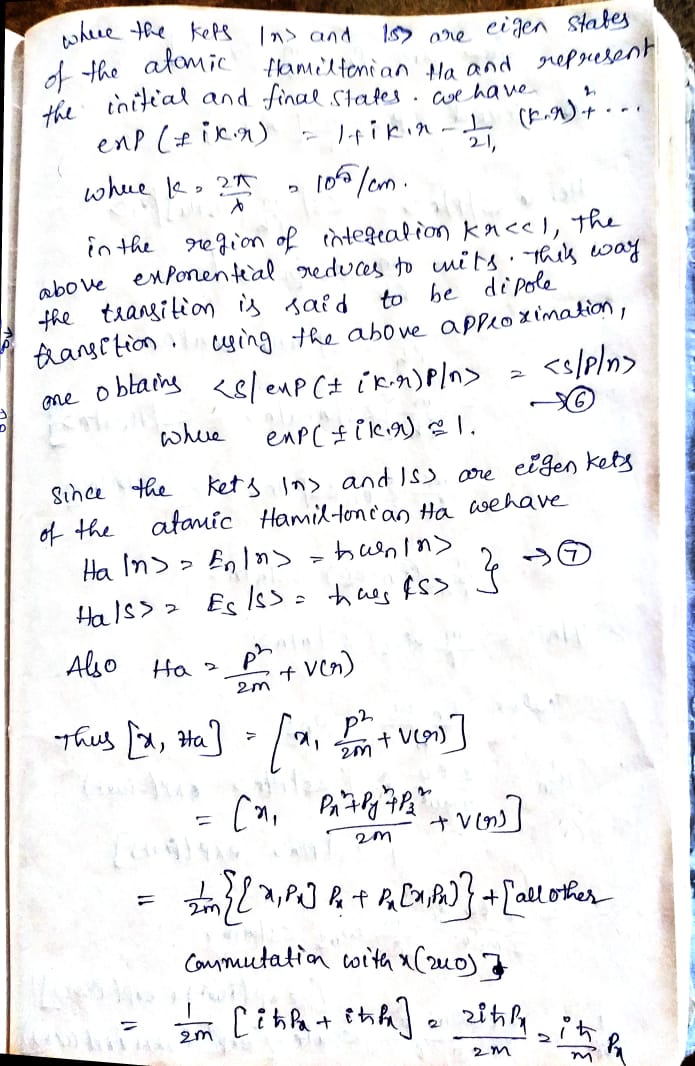 where the kets |n> and |s> are eigen states
of the atomic Hamiltonian Ha and represent
the initial and final states. we have
exp (± ik.r) = 1 + ik.r - 1/2! (k.r)² + ...
where k = 2π/λ = 10⁵/cm.
in the region of integration kr<<1, the
above exponential reduces to units. this way
the transition is said to be dipole
transition. using the above approximation,
one obtains <s| exp (± ik.r) P|n> = <s|P|n>
→ ⑥
where exp (± ik.r) ≈ 1.
Since the kets |n> and |s> are eigen kets
of the atomic Hamiltonian Ha we have
Ha |n> = En|n> = ħωn|n>
Ha|s> = Es|s> = ħωs|s> } → ⑦
Also Ha = p²/2m + v(r)
Thus [x, Ha] = [x, p²/2m + v(r)]
= [x, (Px² + Py² + Pz²)/2m + v(r)]
= 1/2m {[x, Px] Px + Px [x, Px]} + [all other
commutation with x (zero)]
= 1/2m [iħPx + iħPx] = 2iħPx/2m = iħ/m Px